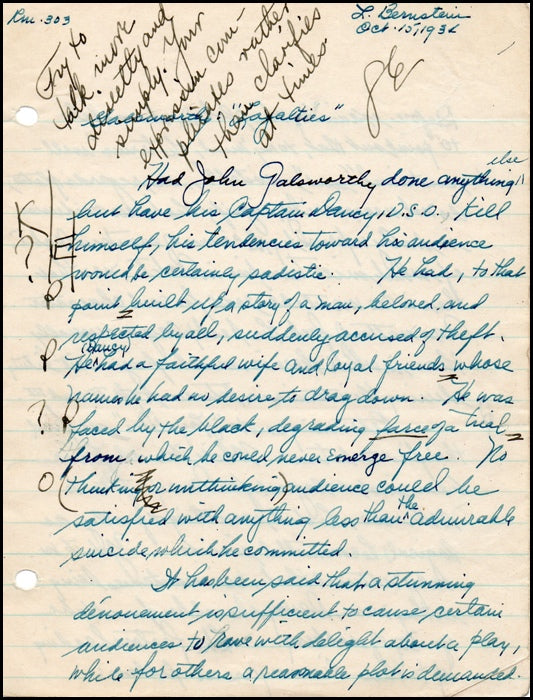 Rm. 303
L. Bernstein
Oct. 15, 1934
Try to
talk more
directly and
simply. Your
expression com-
plicates rather
than clarifies
at times.
Galsworthy's "Loyalties"
Had John Galsworthy done anything else
but have his Captain Dancy, D.S.O., kill
himself, his tendencies toward his audience
would be, certainly, sadistic. He had, to that
point, built up a story of a man, beloved and
respected by all, suddenly accused of theft.
He (Dancy) had a faithful wife and loyal friends whose
names he had no desire to drag down. He was
faced by the black, degrading farce of a trial
from which he could never emerge free. No
(thinking or unthinking) audience could be
satisfied with anything less than the admirable
suicide which he committed.
It has been said that a stunning
dénouement is sufficient to cause certain
audiences to rave with delight about a play,
while for others a reasonable plot is demanded.